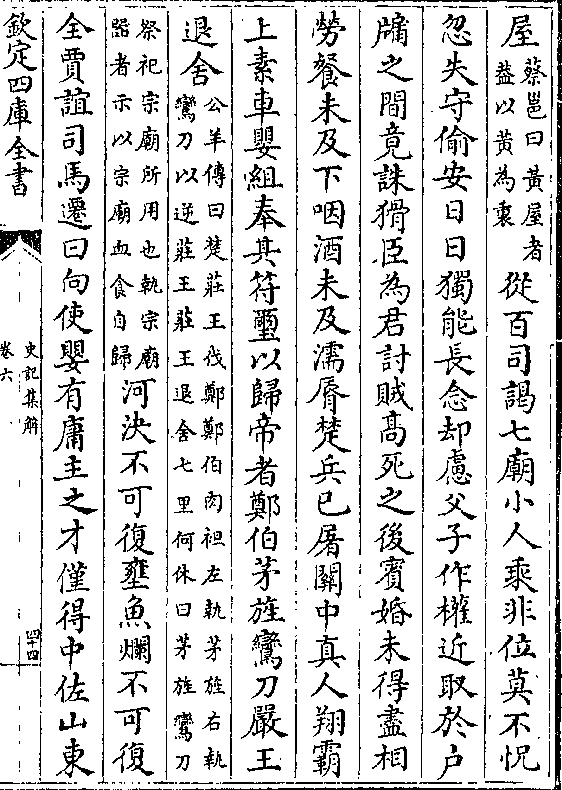 屋蔡邕曰黄屋者葢以黄為裏從百司謁七廟小人乘非位莫不怳
忽失守偷安日日獨能長念却慮父子作權近取於户
牖之間竟誅猾臣為君討賊髙死之後賔婚未得盡相
勞餐未及下咽酒未及濡脣楚兵已屠關中真人翔霸
上素車嬰組奉其符璽以歸帝者鄭伯茅旌鸞刀嚴王
退舍公羊傳曰楚莊王伐鄭鄭伯肉袒左執茅旌右執鸞刀以逆莊王莊王退舍七里何休曰茅旌鸞刀
祭祀宗廟所用也執宗廟器者示以宗廟血食自歸河決不可復壅魚爛不可復
全賈誼司馬遷曰向使嬰有庸主之才僅得中佐山東
欽定四庫全書
史記集解
卷六
四十四